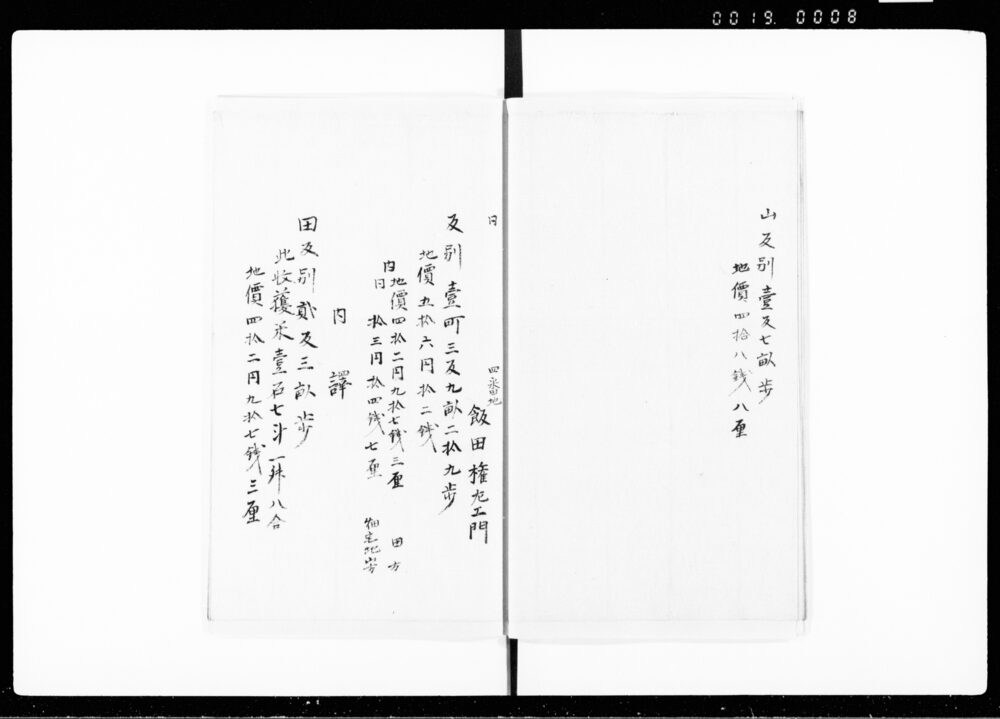 0019.0008
山反別壹反七畝歩
地價四拾八銭八厘
同
四番地
飯田権左エ門
反別壹町三反九畝二拾九歩
地價五拾六円拾二銭
内地價四拾二円九拾七銭三厘 田方
同拾三円拾四銭七厘
内譯
田反別貳反三畝歩
此收穫米壹石七斗一升八合
地價四拾二円九拾七銭三厘